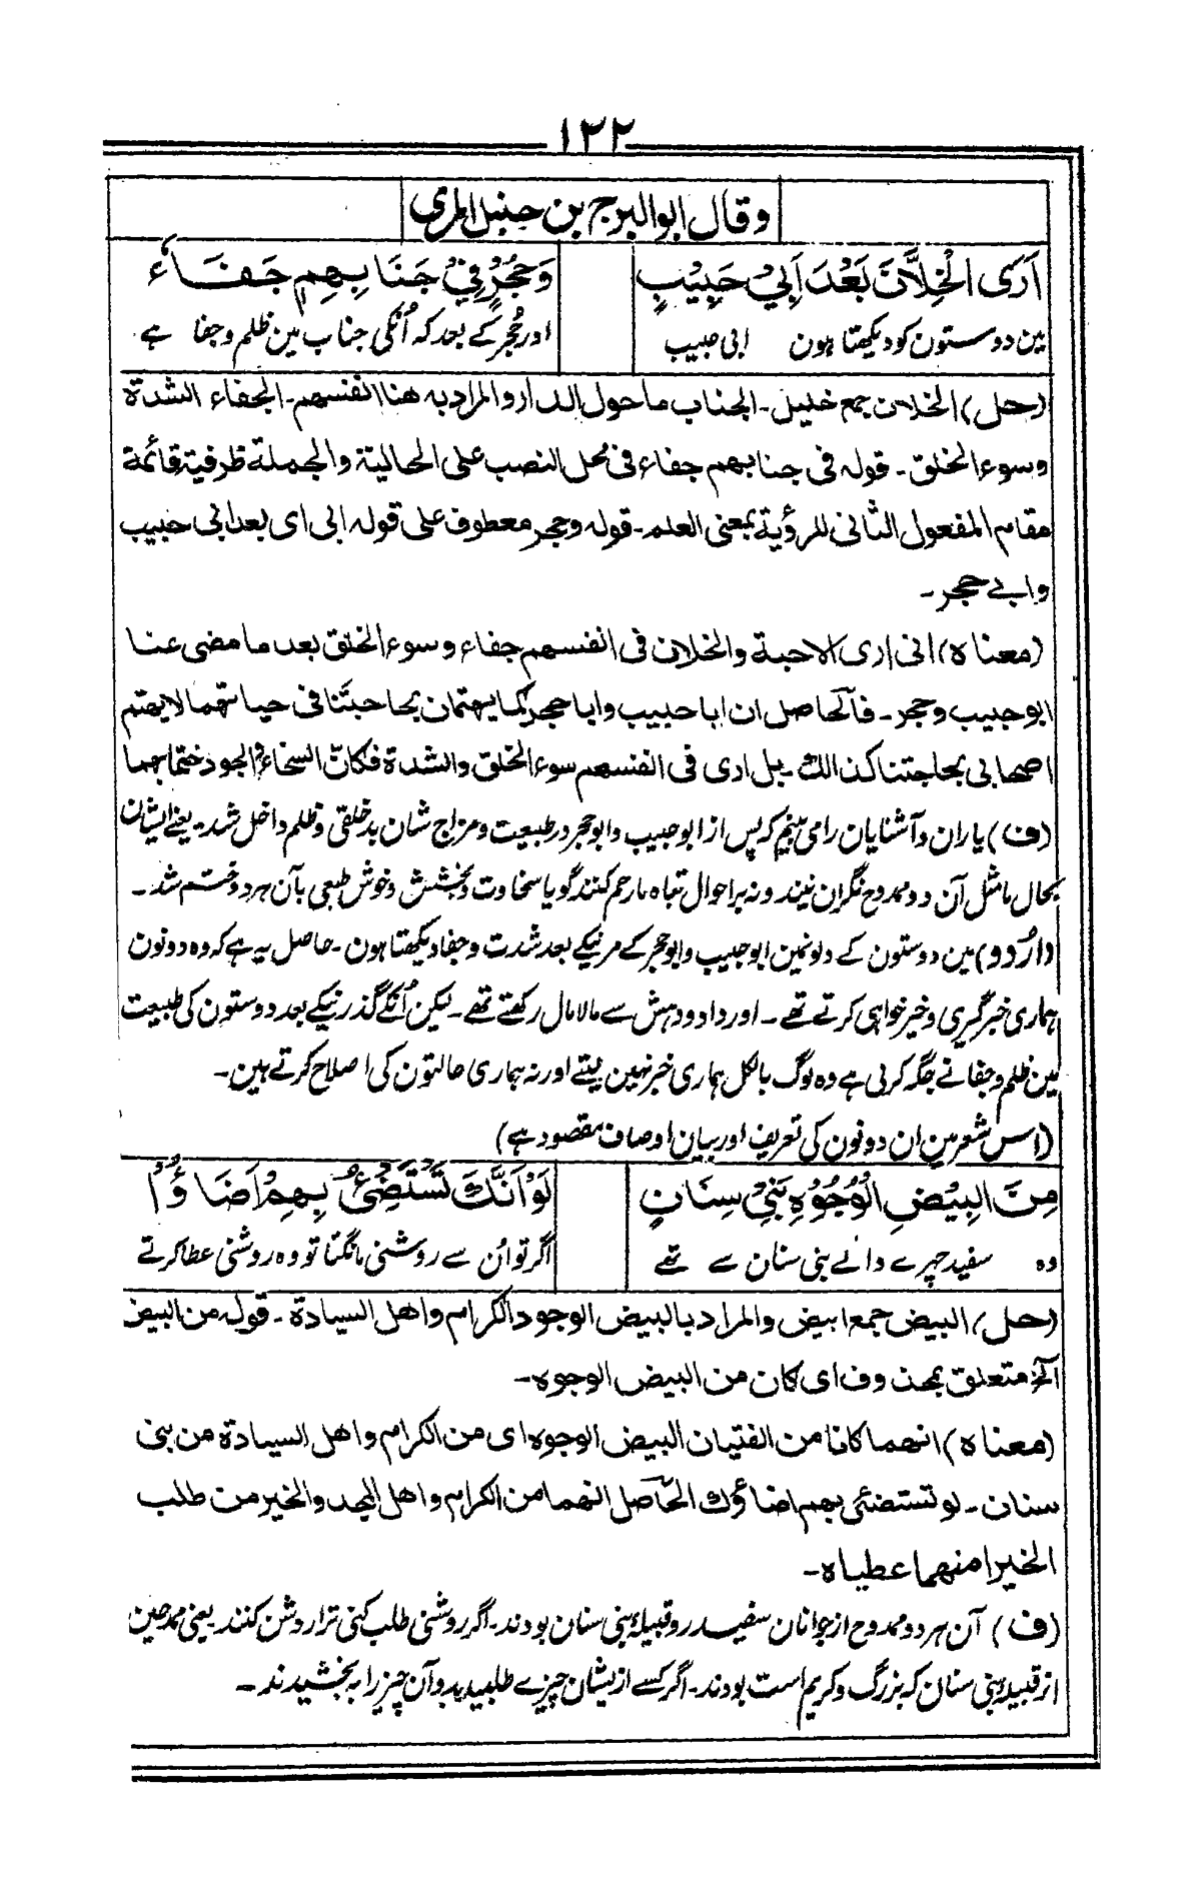 ۱۲۲
وقال ابو البرج بن حنبل المری
اَرَی الْخِلَّانَ بَعْدَ اَبِیْ حَبِیْبٍ وَحُجْرٍ فِیْ جَنَابِهِم جَفَاءٗ
مین دوستون کو دیکھتا ہون ابی حبیب اور حُجر کے بعد کہ اُنکی جناب مین ظلم و جفا ہے۔
(حل) الخلان جمع خلیل۔ الجناب ماحول الدار والمراد به هنا انفسهم۔ الجفاء الشدة
وسوء الخلق۔ قوله فی جنابهم جفاء فی محل النصب علی الحالیة والجملة ظرفیة قائمة
مقام المفعول الثانی للرؤیة بمعنی العلم۔ قوله وحجر معطوف علی قوله ابی ای بعد ابی حبیب
وابے حجر۔
(معناه) انی اری الاحبة والخلان فی انفسهم جفاء وسوء الخلق بعد ما مضی عنا
ابو حبیب وحجر۔ فالحاصل ان ابا حبیب وابا حجر کما یهتمان بحاجتنا فی حیاتهما لا یهتم
اصحابی بحاجتنا کذالک۔ بل اری فی انفسهم سوء الخلق والشدة فکانّ السخاء والجود ختما بهما
(ف) یاران و آشنایان را می بینم کہ پس از ابو حبیب و ابو حجر در طبیعت و مزاج شان بدخلقی و ظلم داخل شد۔ یعنے ایشان
بحال ما مثل آن دو ممدوح نگران نیند و نہ بر احوال تباہ ما رحم کنند گویا سخاوت و بخشش و خوش طبعی بآن ہردو ختم شد۔
(اردو) مین دوستون کے دلونمین ابو حبیب و ابو حجر کے مرنیکے بعد شدت و جفا دیکھتا ہون۔ حاصل یہ ہے کہ وہ دونون
ہماری خبرگیری و خیر خواہی کرتے تھے۔ اور داد و دہش سے مالامال رکھتے تھے۔ لیکن اُنکے گذر نیکے بعد دوستون کی طبیعت
مین ظلم و جفا نے جگہ کرلی ہے وہ لوگ بالکل ہماری خبر نہین لیتے اور نہ ہماری حالتون کی اصلاح کرتے ہین۔
(اس شعر مین ان دونون کی تعریف اور بیان اوصاف مقصود ہے)
مِنَ الْبِیْضِ الْوُجُوْہِ بَنِیْ سِنَانٍ لَوْ اَنَّكَ تَسْتَضِیْئُ بِهِمْ اَضَاؤُا
وہ سفید چہرے والے بنی سنان سے تھے اگر تو اُن سے روشنی مانگتا تو وہ روشنی عطا کرتے
(حل) البیض جمع ابیض والمراد بالبیض الوجوه الکرام واهل السیادة۔ قوله من البیض
الخ متعلق بمحذوف ای کان من البیض الوجوه۔
(معناه) انهما کانا من الفتیان البیض الوجوه ای من الکرام واهل السیادة من بنی
سنان۔ لو تستضئی بهم اضاؤك الحاصل انهما من الکرام واهل المجد والخیر من طلب
الخیر منهما عطیاه۔
(ف) آن ہردو ممدوح از جوانان سفید رو قبیلۂ بنی سنان بودند۔ اگر روشنی طلب کنی ترا روشن کنند یعنی ممدحین
از قبیلۂ بنی سنان کہ بزرگ و کریم است بودند۔ اگر کسے ازیشان چیزے طلبید بدو آن چیز را بخشیدند۔